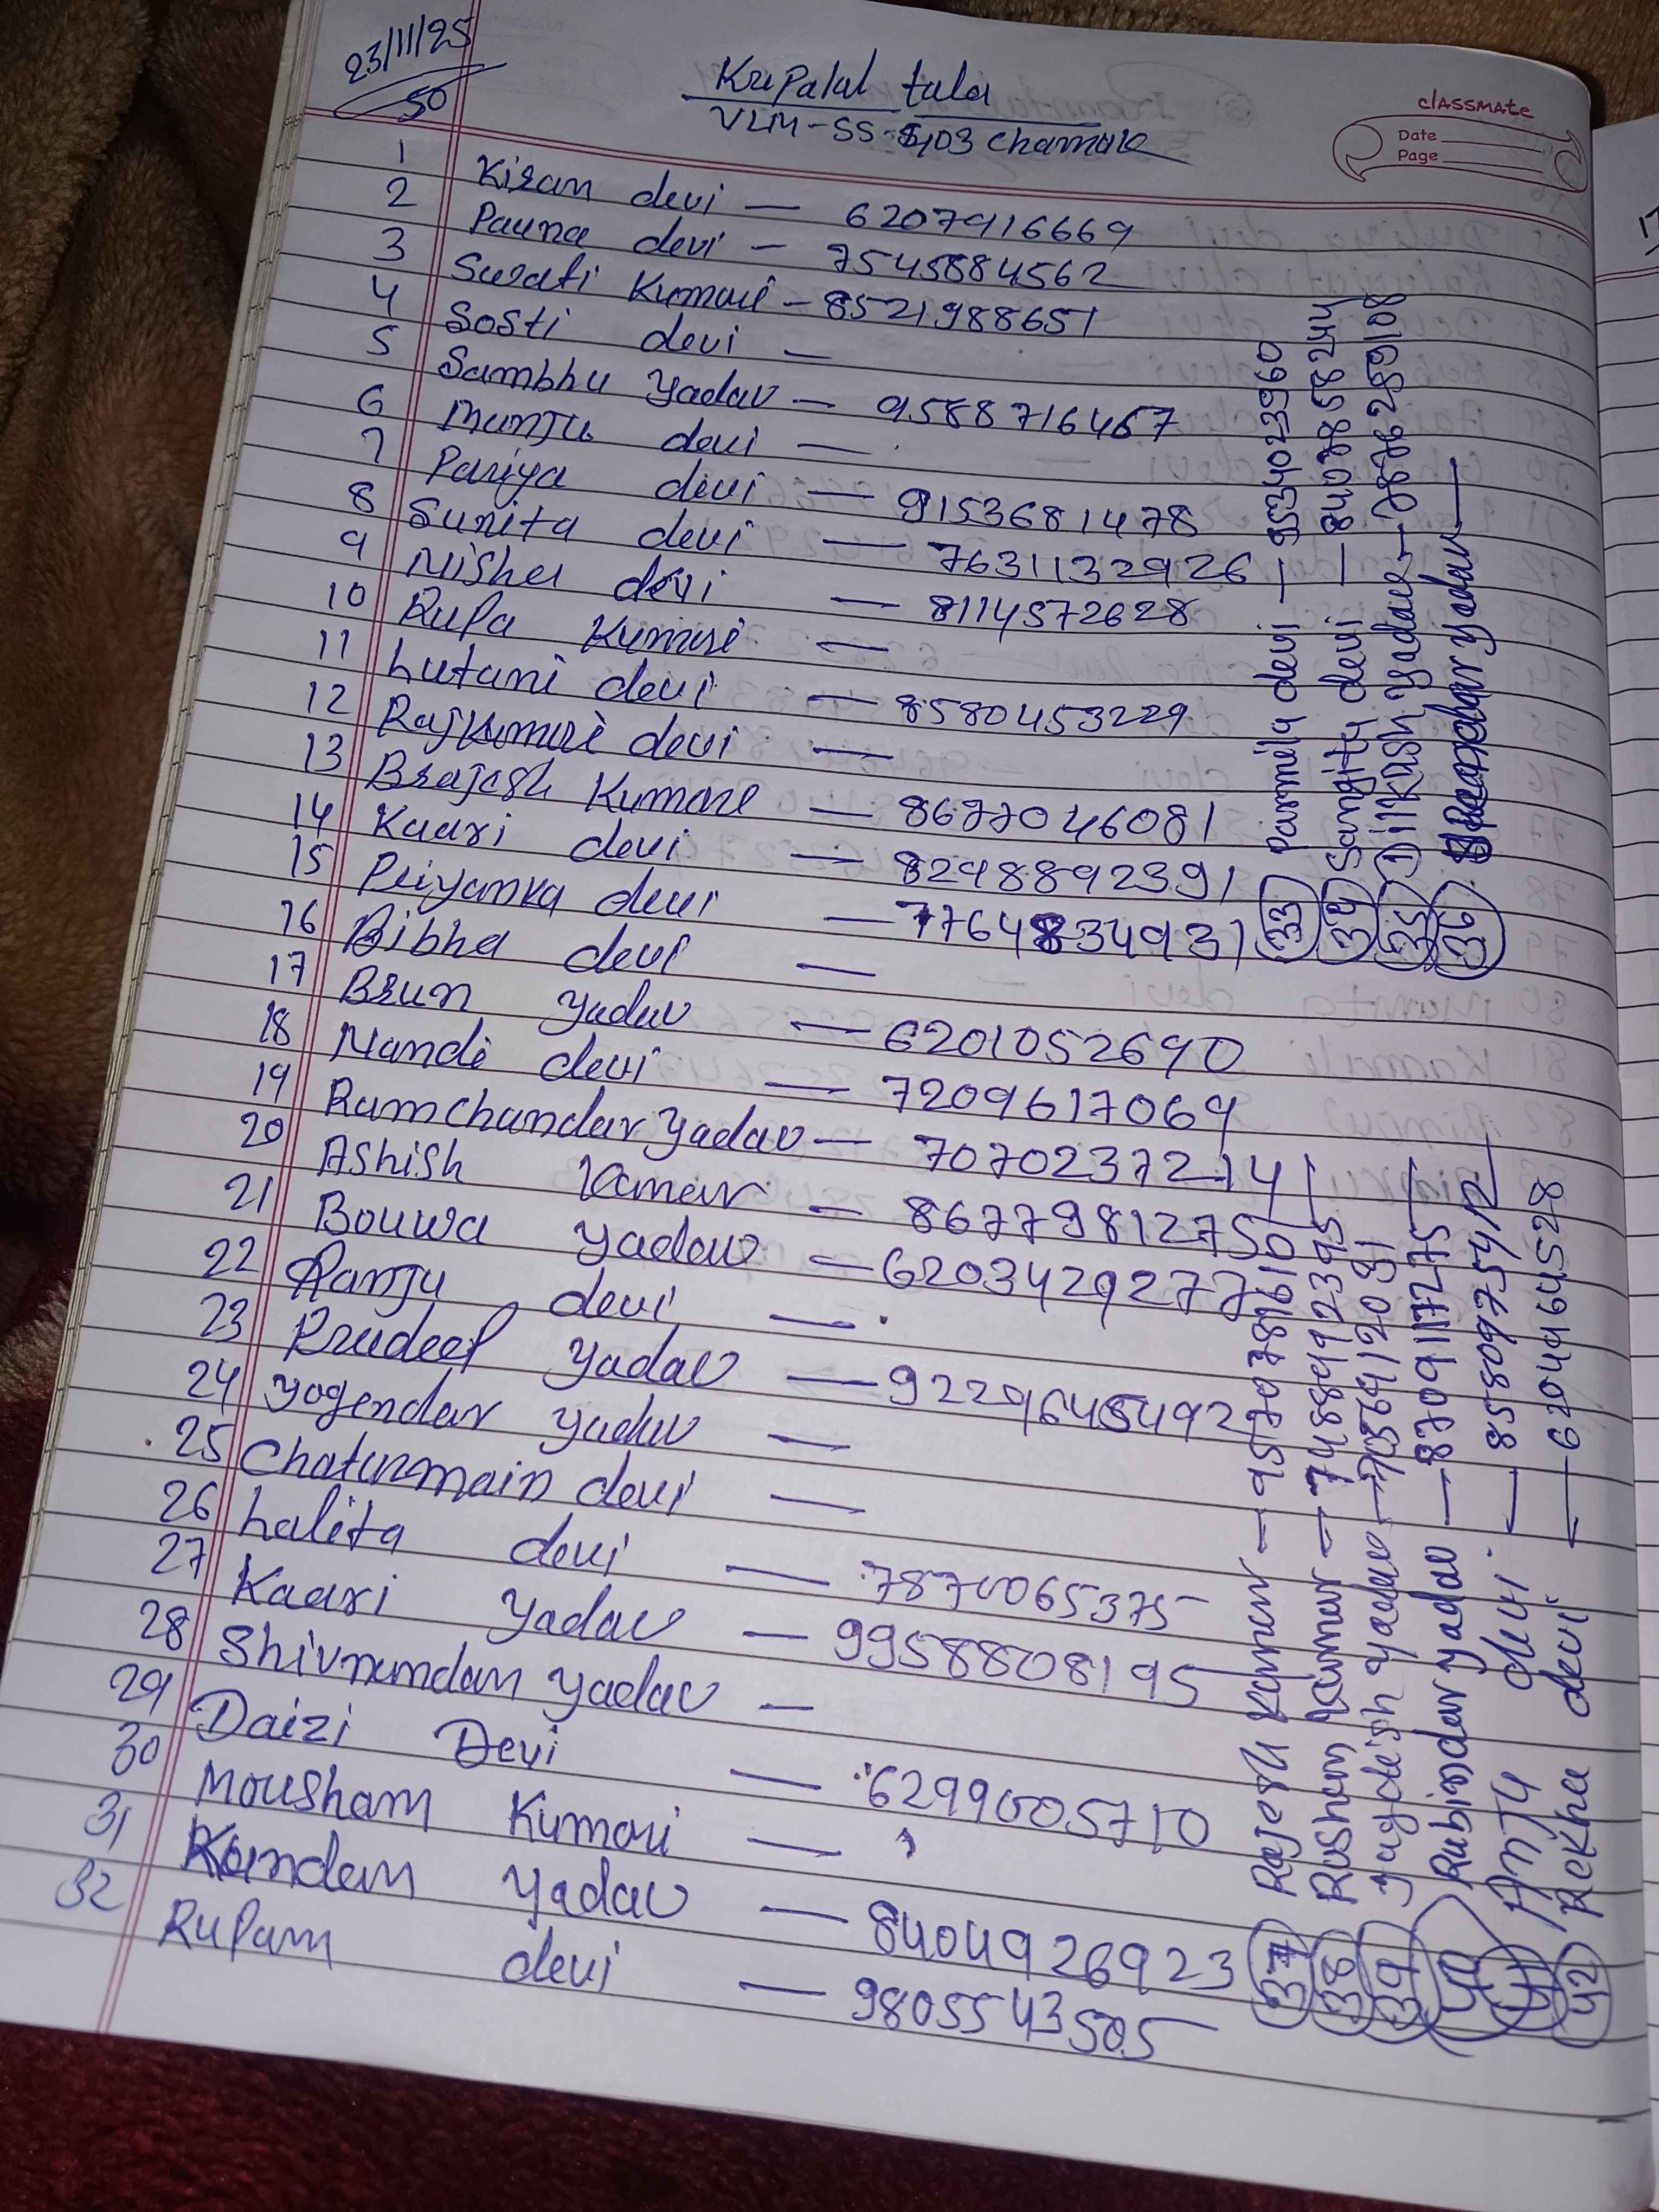 23/11/25
50
Krupalal tula
VLM-SS-5,03 Chamare
classmate
Date
Page
1 Kiran devi — 6207916669
2 Pauna devi — 7545884562
3 Swati Kumari — 8521988651
4 Sosti devi —
5 Sambhu Yadav — 9588716467
6 Munju devi —
7 Pariya devi — 9153681478
8 Sunita devi — 7631132926
9 Nisha devi — 8114572628
10 Rupa Kumari —
11 Lutani devi — 8580453229
12 Rajkumari devi —
13 Brajesh Kumar — 8677046081
14 Kaari devi — 8298892391
15 Priyanka devi — 7764834931
16 Bibha devi —
17 Brun Yadav — 6201052690
18 Nandi devi — 7209617069
19 Ramchandar Yadav — 7070237214
20 Ashish Kumar — 8677981275
21 Bouwa Yadav — 6203429277
22 Ranju devi —
23 Pradeep Yadav — 9229645492
24 Yogendar Yadav —
25 Chaturmain devi —
26 Lalita devi — 7870065375
27 Kaari Yadav — 9958808195
28 Shivnundan Yadav —
29 Daizi Devi — 6299005710
30 Mousham Kumari —
31 Kundan Yadav — 8404926923
32 Rupam devi — 9805543505
33 Parmela devi — 9534023960
34 Sangita devi — 84078858244
35 Dilkush Yadav — 7876289108
36 Yadav —
37 Rajesh Kumar — 9570781610
38 Rusham Kumar — 7488912395
39 Jaydeish Yadav — 7369112081
40 Rubindar Yadav — 8709117275
41 Anju devi — 8580975412
42 Rekha devi — 6204964528